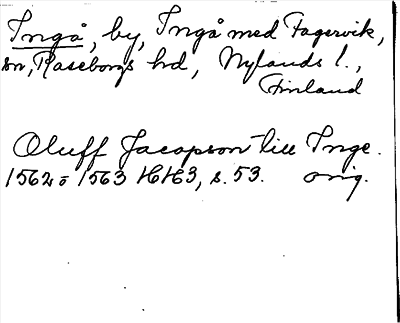 Ingå, by, Ingå med Fagervik,
sn, Raseborgs hd, Nylands l.,
Finland
Oluff Jacopson till Inge.
1562 o 1563 HH3, s. 53. orig.